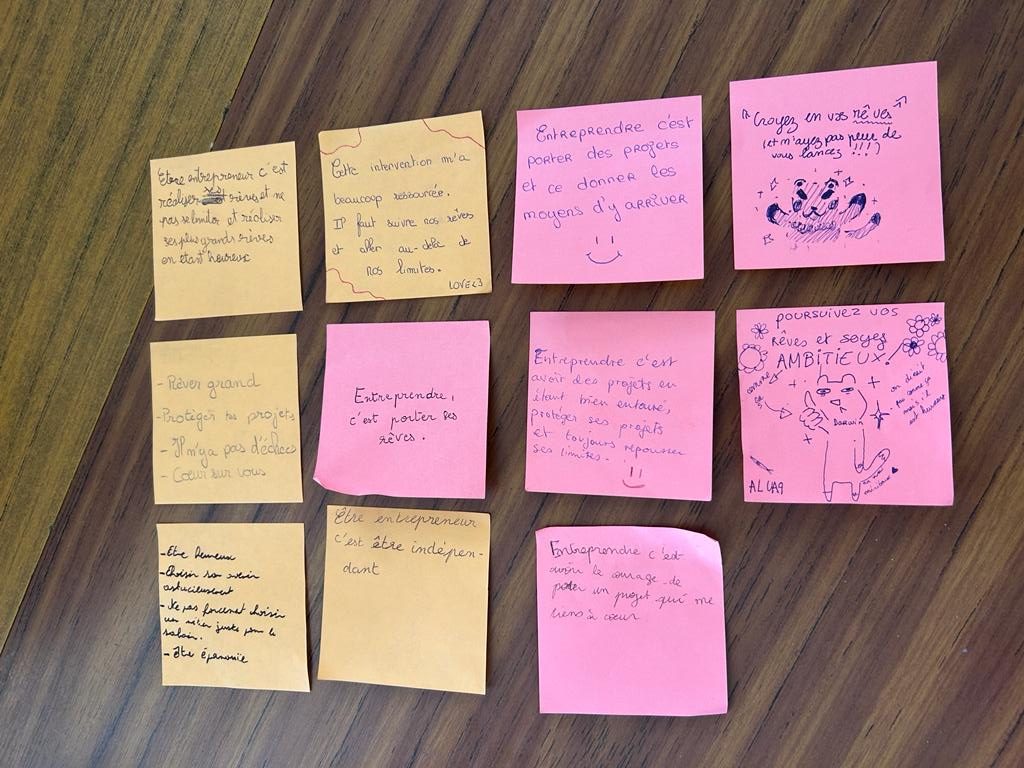 Etre entrepreneur c'est
réaliser ses rêves et ne
pas se limiter et réaliser
ses plus grands rêves
en étant heureux
Cette intervention m'a
beaucoup ressourcée.
Il faut suivre nos rêves
et aller au-delà de
nos limites.
LOVE <3
Entreprendre c'est
porter des projets
et ce donner les
moyens d'y arriver
"Croyez en vos rêves"
(et n'ayez pas peur de
vous lancez !!!)
- Rêver grand
- Protéger tes projets
- Il n'y a pas d'échecs
- Cœur sur vous
Entreprendre,
c'est porter ses
rêves.
Entreprendre c'est
avoir des projets en
étant bien entouré,
protéger ses projets
et toujours repousser
ses limites.
POURSUIVEZ VOS
rêves et soyez
AMBITIEUX!
on dirait
pas comme ça
mais il
est heureux
DARWIN
- Etre heureux
- Choisir son avenir
astucieusement
- Ne pas forcement choisir
un métier juste pour le
salaire.
- Être épanouie
Etre entrepreneur
c'est être indépen-
dant
Entreprendre c'est
avoir le courage de
porter un projet qui me
tiens à cœur